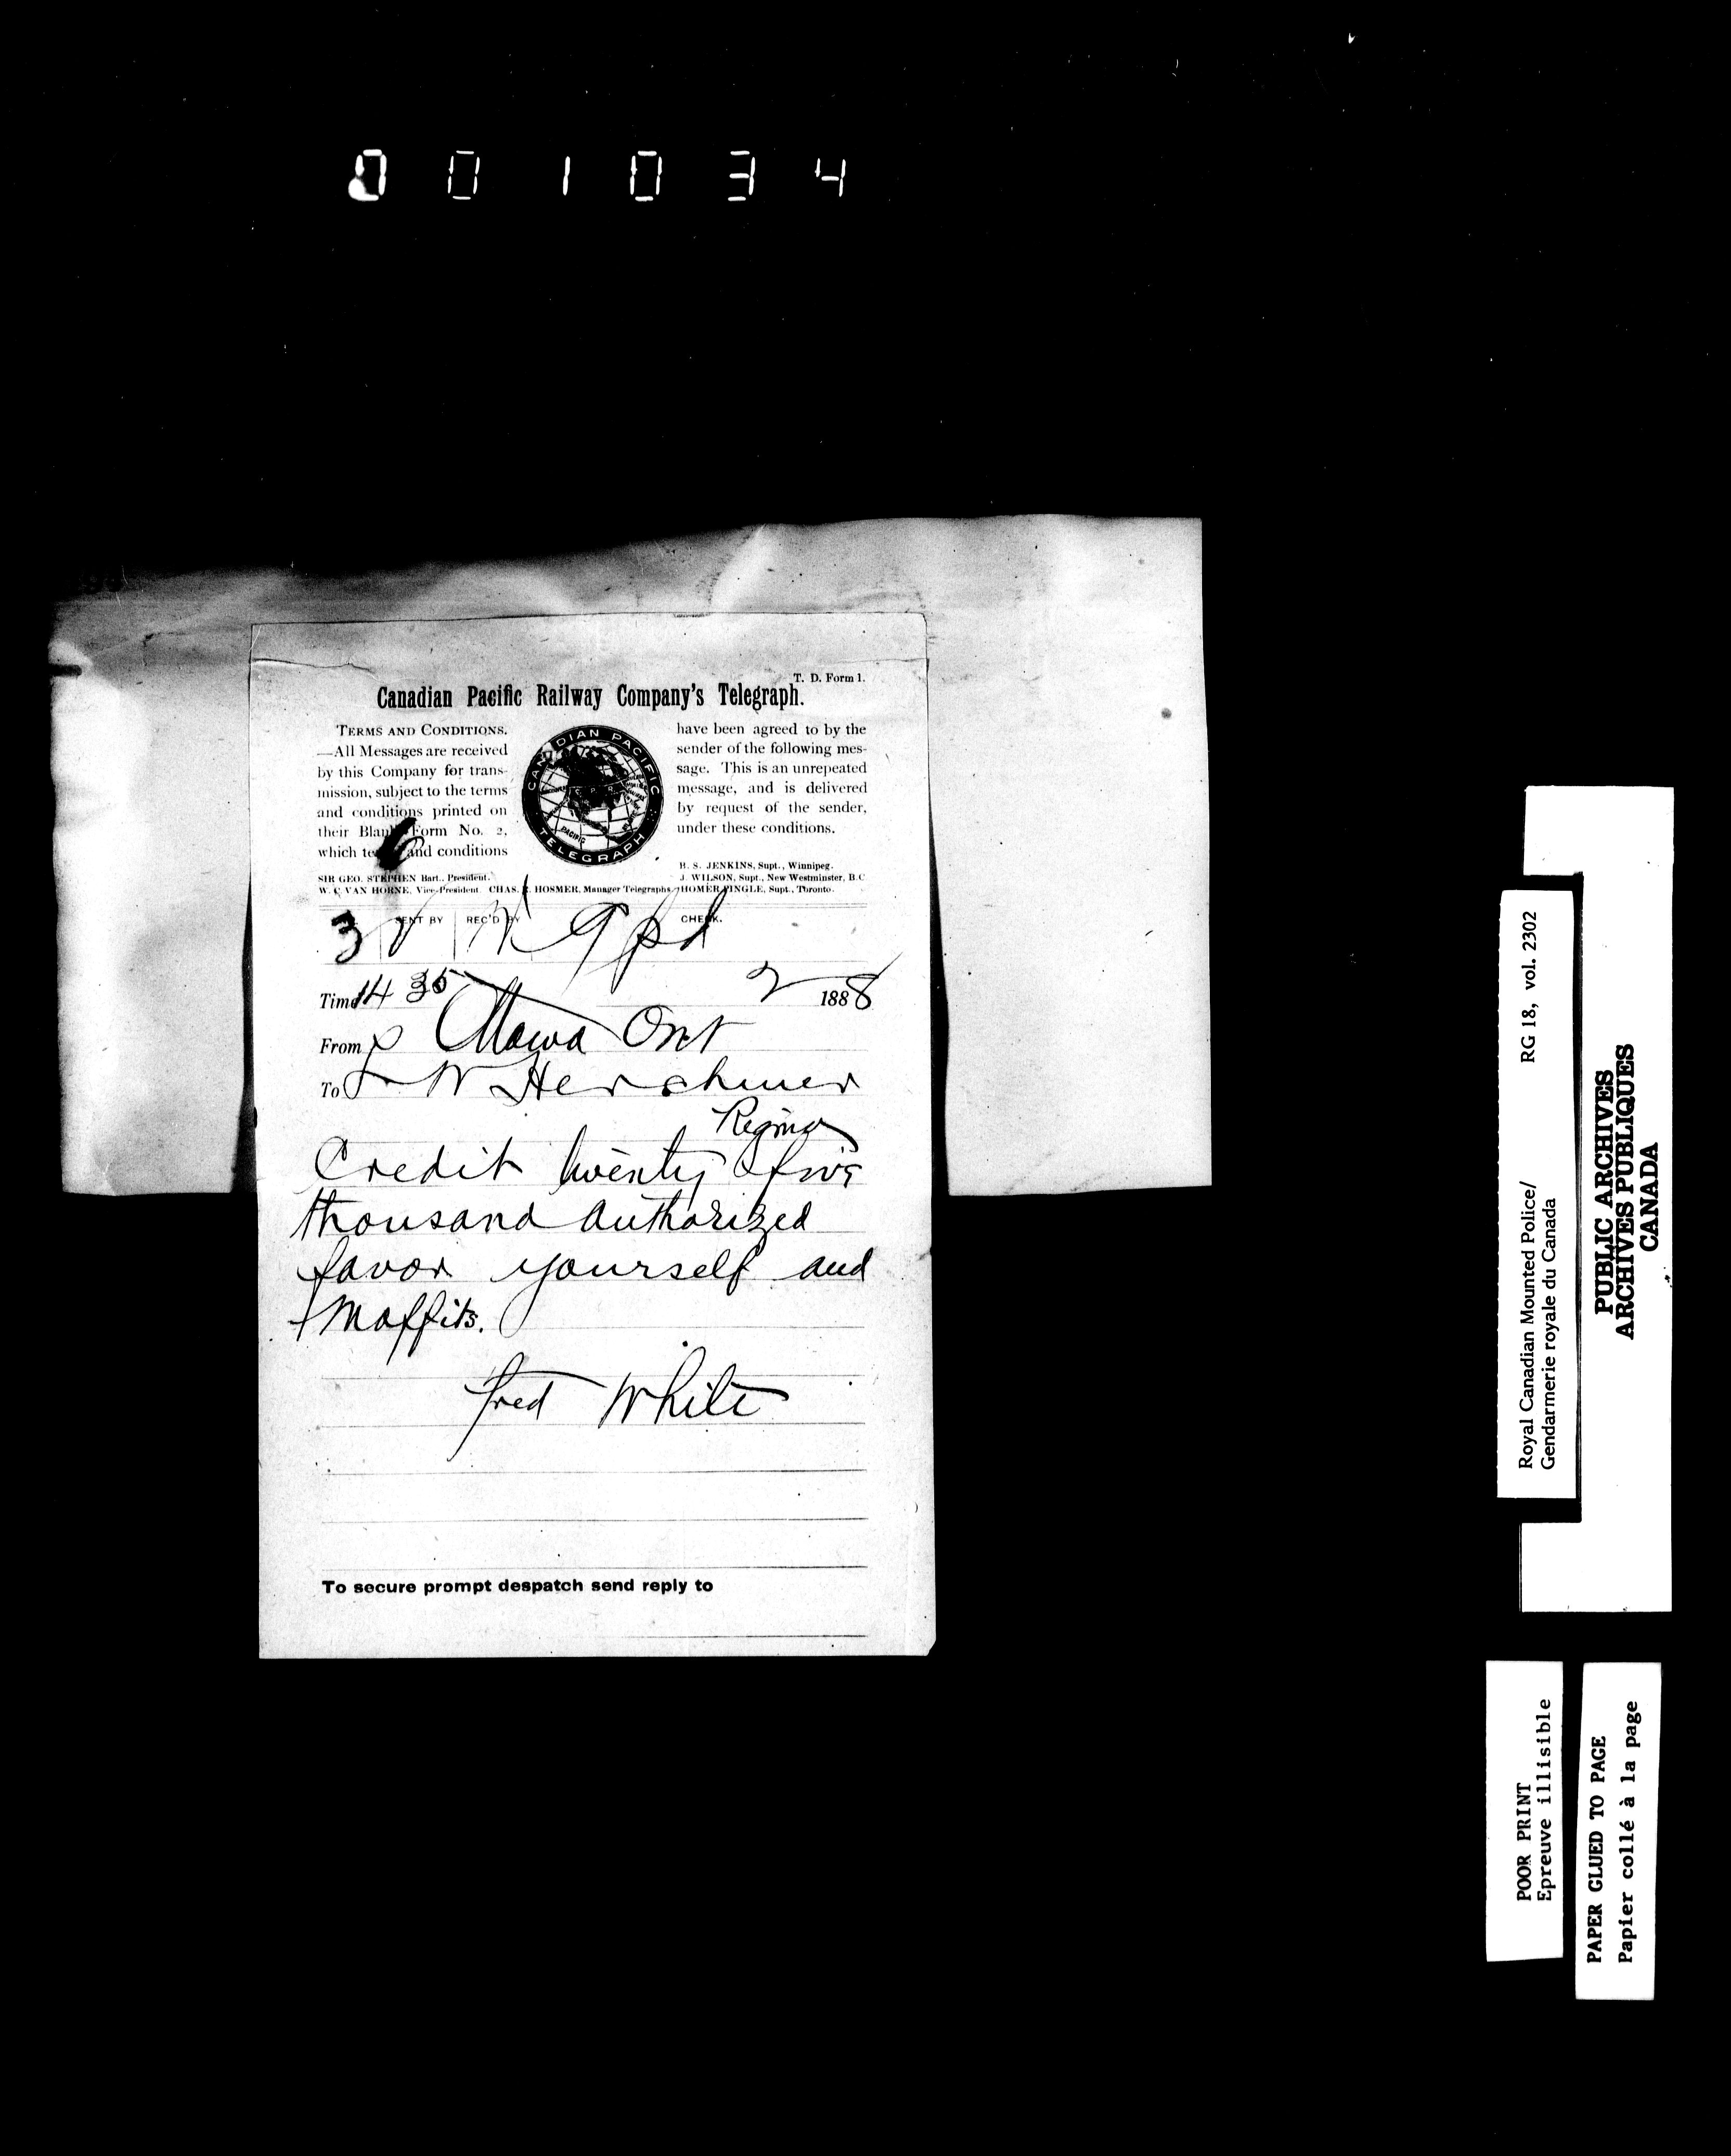 001034
T. D. Form 1.
Canadian Pacific Railway Company's Telegraph.
TERMS AND CONDITIONS.
—All Messages are received
by this Company for trans-
mission, subject to the terms
and conditions printed on
their Blank Form No. 2,
which te and conditions
CANADIAN PACIFIC
C. P. R.
PACIFIC
TELEGRAPH
have been agreed to by the
sender of the following mes-
sage. This is an unrepeated
message, and is delivered
by request of the sender,
under these conditions.
SIR GEO. STEPHEN Bart., President.
W. C. VAN HORNE, Vice-President. CHAS. R. HOSMER, Manager Telegraphs.
B. S. JENKINS, Supt., Winnipeg.
J. WILSON, Supt., New Westminster, B.C.
HOMER PINGLE, Supt., Toronto.
6
SENT BY REC'D BY CHECK.
3 V 9 pd
Time 14 35 2 1888
From Ottawa Ont
To L W Herchmer
Regina
Credit twenty five
thousand authorized
favor yourself and
Moffits.
Fred White
To secure prompt despatch send reply to
Royal Canadian Mounted Police/ RG 18, vol. 2302
Gendarmerie royale du Canada
PUBLIC ARCHIVES
ARCHIVES PUBLIQUES
CANADA
POOR PRINT
Epreuve illisible
PAPER GLUED TO PAGE
Papier collé à la page